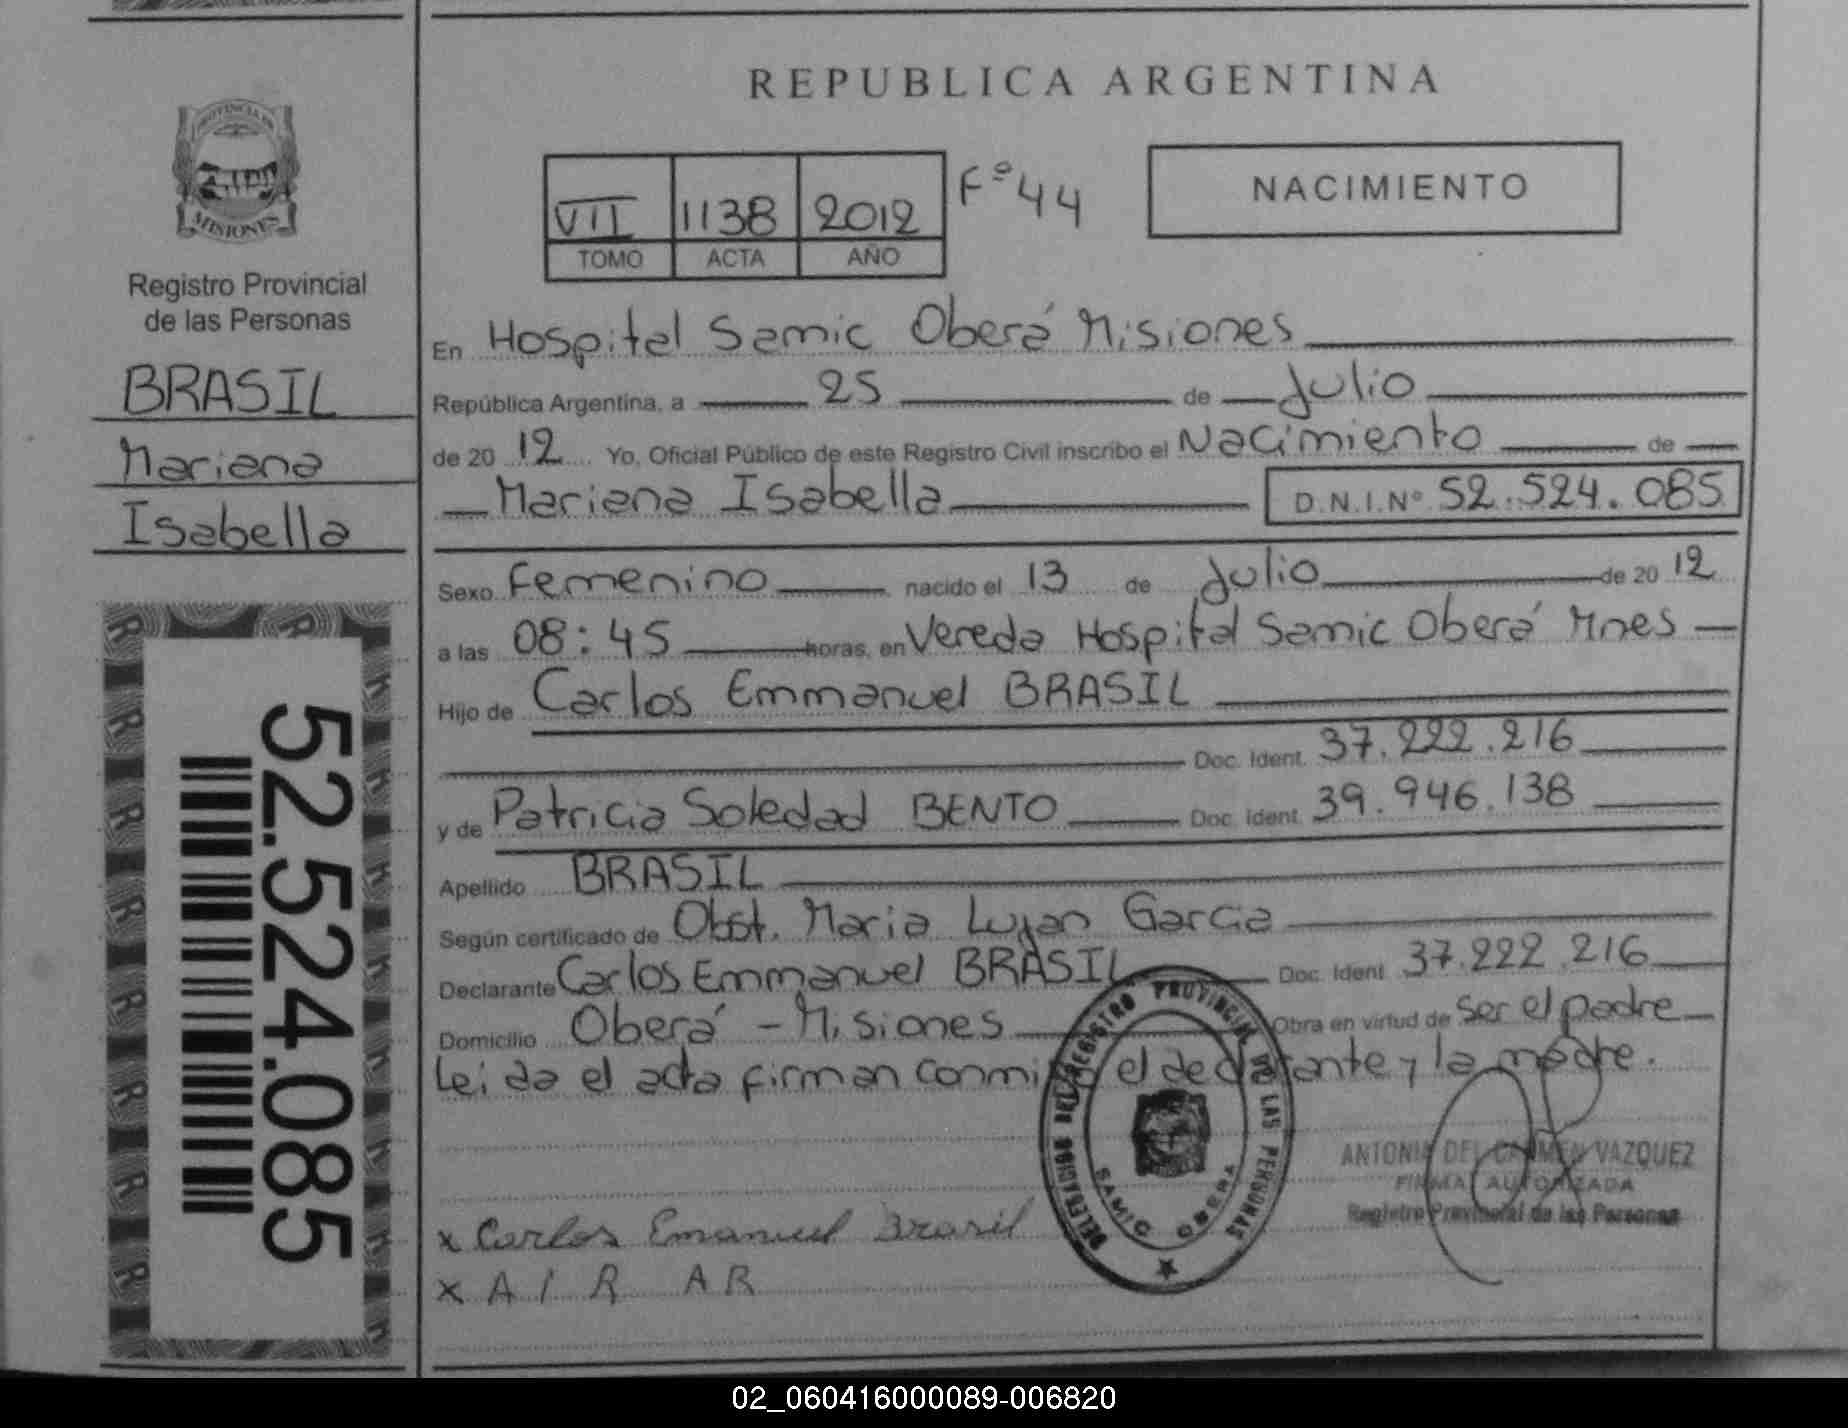 REPUBLICA ARGENTINA
PROVINCIA DE
MISIONES
Registro Provincial
de las Personas
BRASIL
Mariana
Isabella
52.524.085
VII 1138 2012 Fº 44
TOMO ACTA AÑO
NACIMIENTO
En Hospital Samic Oberá Misiones
República Argentina, a 25 de Julio
de 20 12 Yo, Oficial Público de este Registro Civil inscribo el Nacimiento de
Mariana Isabella D.N.I.Nº 52.524.085
Sexo Femenino nacido el 13 de Julio de 20 12
a las 08:45 horas, en Vereda Hospital Samic Oberá Mnes
Hijo de Carlos Emmanuel BRASIL
Doc. Ident. 37.222.216
y de Patricia Soledad BENTO Doc. Ident. 39.946.138
Apellido BRASIL
Según certificado de Obst. Maria Lujan Garcia
Declarante Carlos Emmanuel BRASIL Doc. Ident. 37.222.216
Domicilio Oberá - Misiones Obra en virtud de ser el padre
Leida el acta firman conmigo el declarante y la madre.
DELEGACION DEL REGISTRO PROVINCIAL DE LAS PERSONAS
SAMIC OBERA
ANTONIA DEL CARMEN VAZQUEZ
FIRMA AUTORIZADA
Registro Provincial de las Personas
x Carlos Emanuel Brasil
x A I R AR
02_060416000089-006820